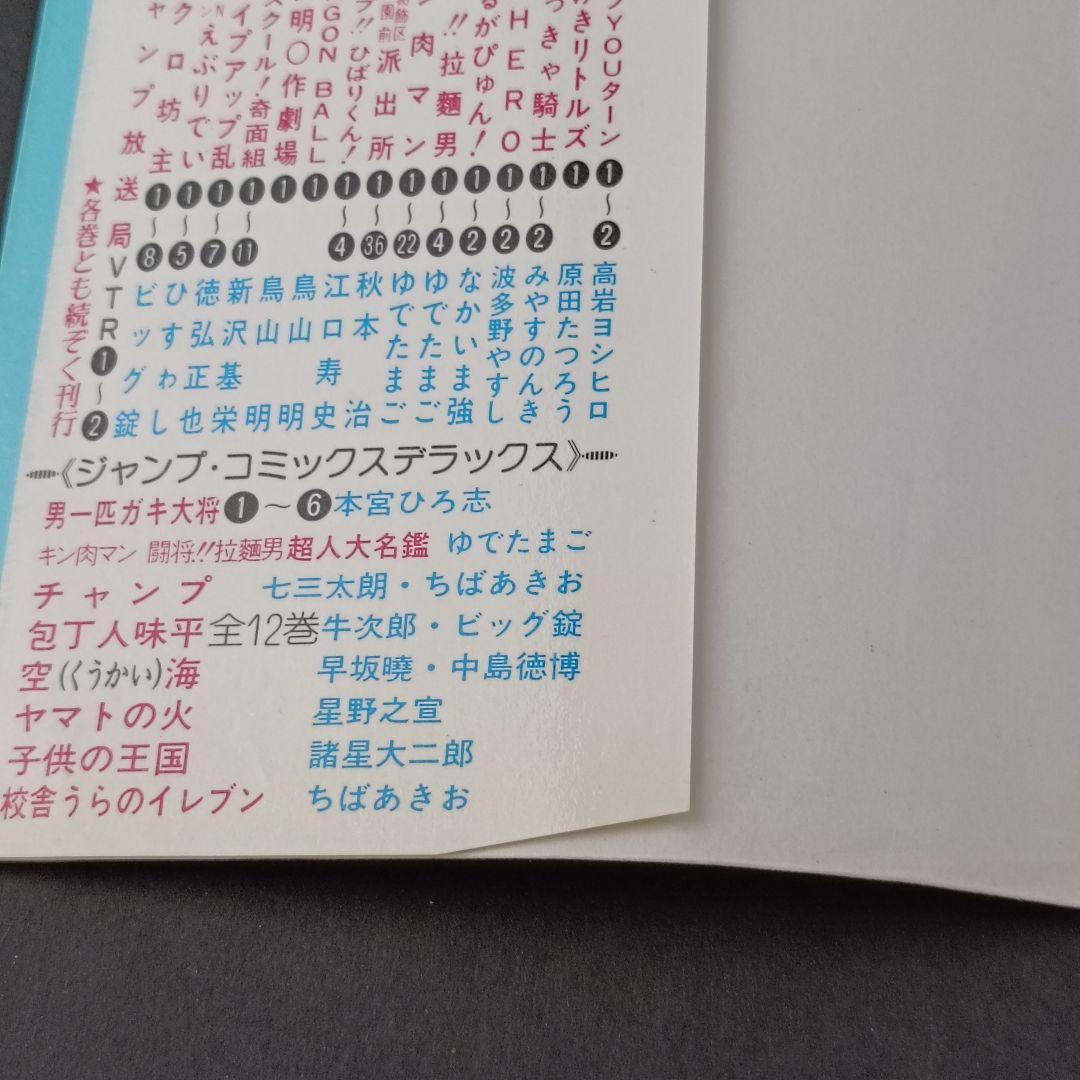 YOUターン❶～❷高岩ヨシヒロ
きリトルズ❶原田たつろう
っきゃ騎士❶～❷みやすのんき
HERO❶～❷波多野やすし
るがぴゅん!❶～❷なかいま強
!!拉麵男❶～❹ゆでたまご
肉マン❶～㉒ゆでたまご
飾区園前派出所❶～㊱秋本治
プ!!ひばりくん!❶～❹江口寿史
GON BALL❶鳥山明
明○作劇場❶鳥山明
スクール!奇面組❶～⓫新沢基栄
イプアップ乱❶～❼徳弘正也
えぶりでい❶～❺ひすわし
クロ坊主❶～❽ビッグ錠
ャンプ放送局VTR❶～❷
★各巻とも続ぞく刊行
《ジャンプ・コミックスデラックス》
男一匹ガキ大将❶～❻本宮ひろ志
キン肉マン 闘将!!拉麵男超人大名鑑 ゆでたまご
チャンプ 七三太朗・ちばあきお
包丁人味平全12巻牛次郎・ビッグ錠
空(くうかい)海 早坂曉・中島徳博
ヤマトの火 星野之宣
子供の王国 諸星大二郎
校舎うらのイレブン ちばあきお